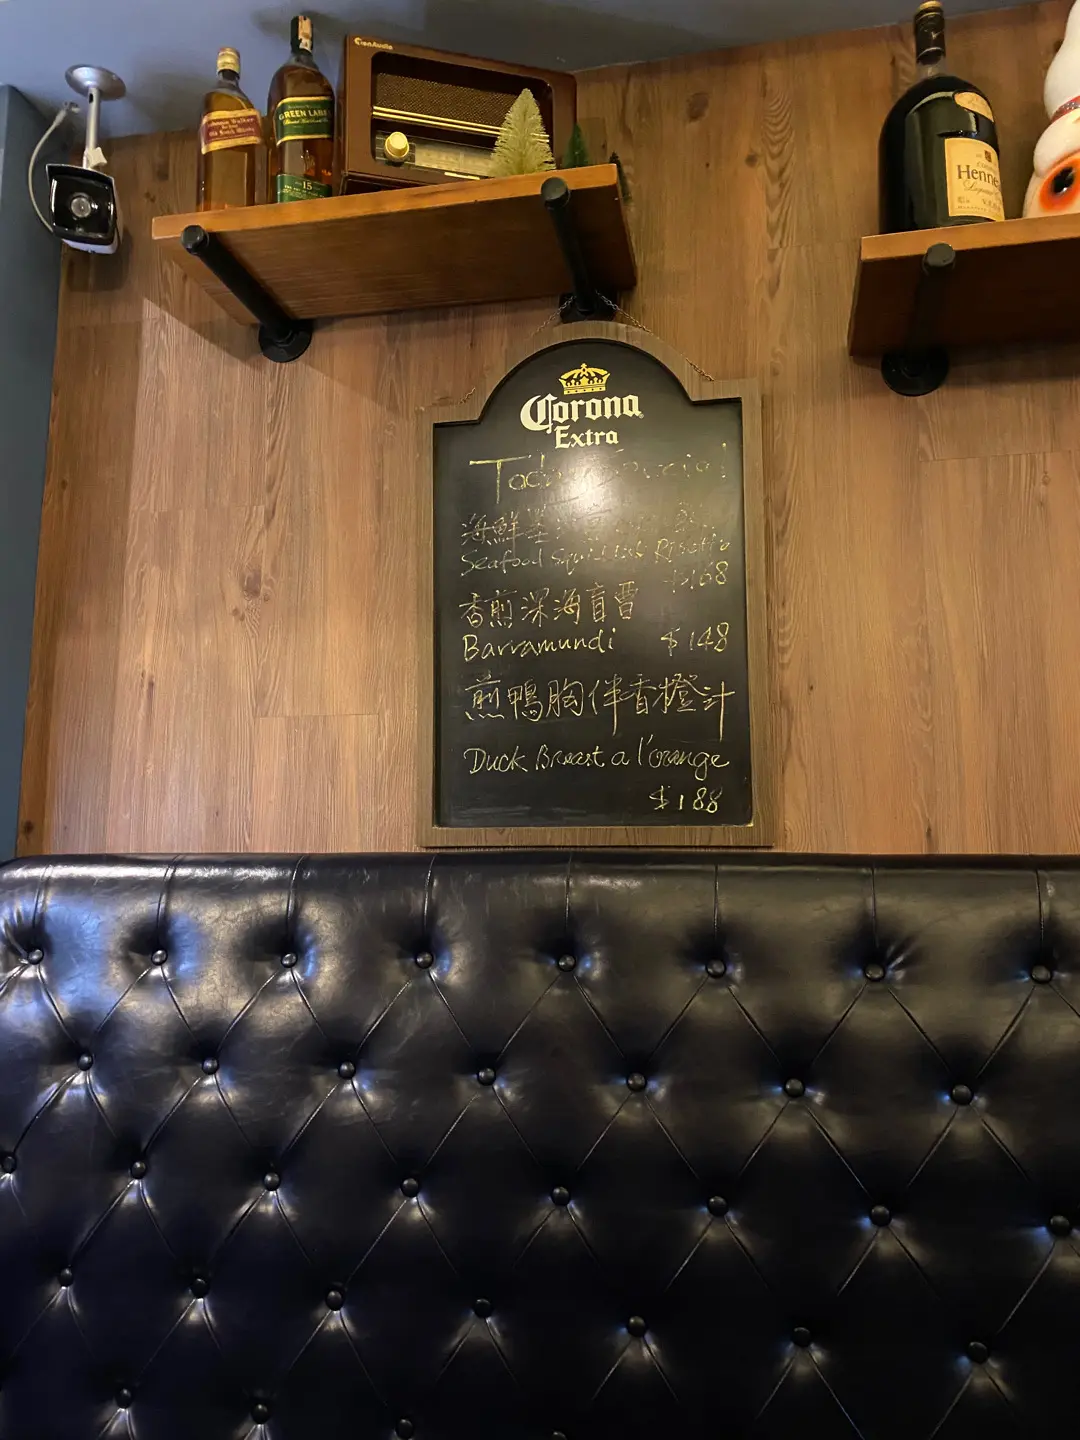 GREEN LABEL
15
Henne
V.S.O.P
Corona
Extra
Today Special
海鮮墨
Seafood Squid Ink Risotto
$168
香煎深海盲曹
Barramundi $148
煎鴨胸伴香橙汁
Duck Breast a l'orange
$188